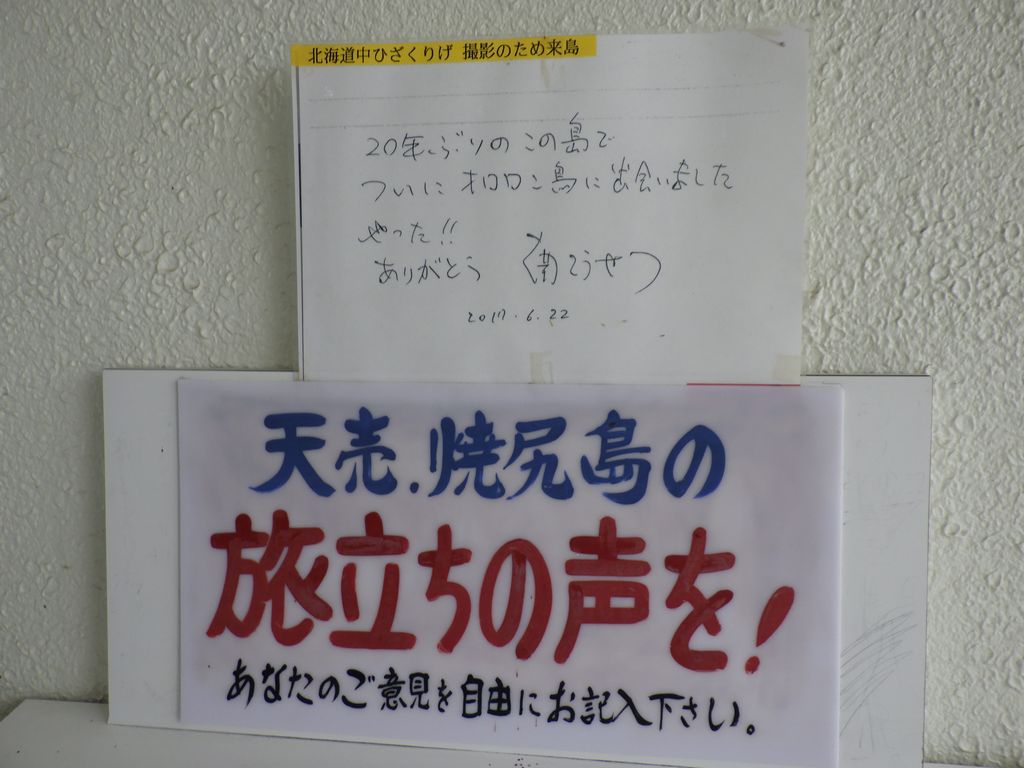 北海道中ひざくりげ 撮影のため来島
20年ぶりのこの島で
ついにオロロン鳥に出会いました
やった!!
ありがとう 南こうせつ
2017.6.22
天売.焼尻島の
旅立ちの声を!
あなたのご意見を自由にお記入下さい。